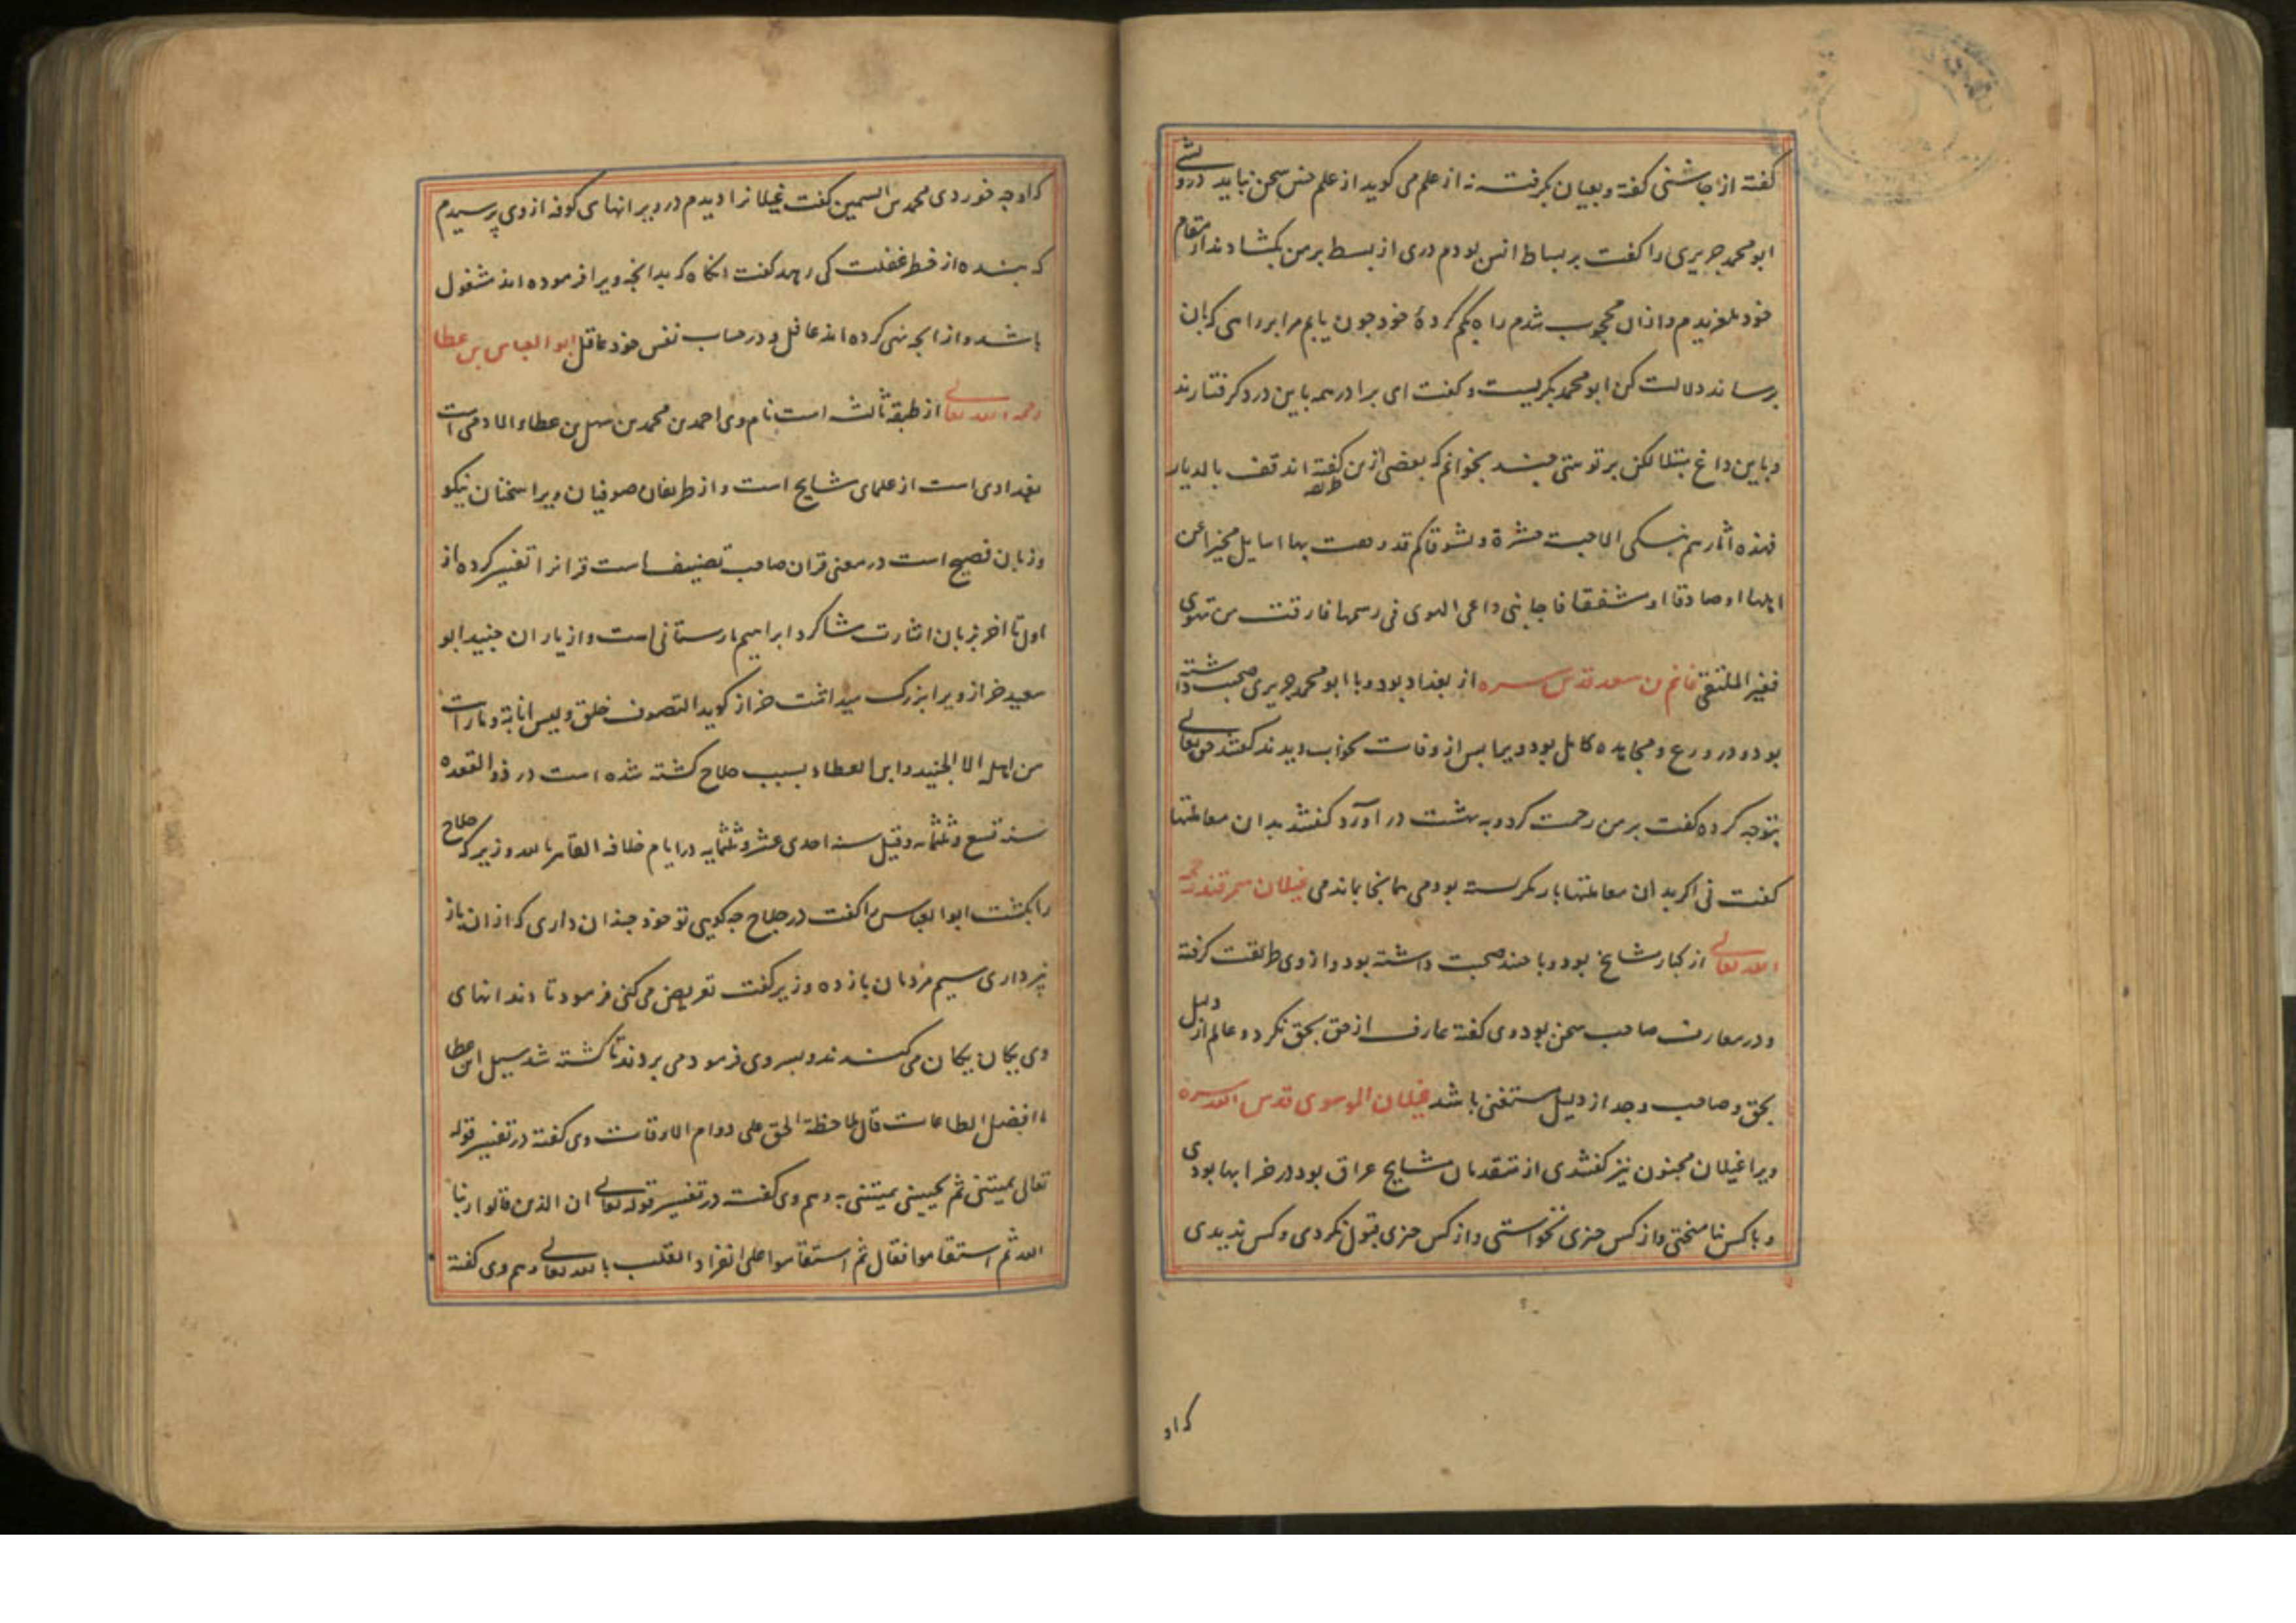 گفته از چاشنی گفته و بعیان بگرفت نه از علم می گوید از علم حس سخن نیاید درویشی
ابو محمد جریری را گفت بر بساط انس بودم دری از بسط بر من بگشادند از مقام
خود بلغزیدم و ازان محجوب شدم راه بگم کردهٔ خود چون یابم مرا براهی که بان
برساند دلالت کن ابو محمد بگریست و گفت ای برادر همه باین درد گرفتارند
و باین داغ مبتلا لکن بر تو بیتی چند بخوانم که بعضی ازین گفته اند قف بالدیار
فهذه اثارهم تبکی الاحبة حسرة و تشوقا کم قد وقفت بها اسایل مخبرا عن
اهلها او صادقا او مشفقا فاجابنی داعی الهوی فی رسمها فارقت من تهوی
فعز الملتقی غانم بن سعد قدس سره از بغداد بود و با ابو محمد جریری صحبت داشته
بود و در ورع و مجاهده کامل بود ویرا پس از وفات بخواب دیدند گفتند حق تعالی
بتو چه کرده گفت بر من رحمت کرد و به بهشت در آورد گفتند بدان معاملتها
گفت نی اگر بدان معاملتها باز نگرسته بودمی همانجا بماندمی غیلان سمرقندی رحمه
الله تعالی از کبار مشایخ بود و با جنید صحبت داشته بود و از وی طریقت گرفته
و در معارف صاحب سخن بود وی گفته عارف از حق بحق نگرد و عالم از دلیل
بحق و صاحب وجد از دلیل مستغنی باشد غیلان الموسوی قدس الله سره
ویرا غیلان مجنون نیز گفتندی از متقدمان مشایخ عراق بود در خرابها بودی
و با کس نیامیختی و از کس چیزی نخواستی و از کس چیزی قبول نکردی و کس ندیدی
که او
که او چه خوردی محمد بن السمین گفت غیلانرا دیدم در ویرانهای کوفه از وی پرسیدم
که بنده از خطر غفلت کی رهد گفت انگاه که بدانچه ویرا فرموده اند مشغول
باشد و از انچه نهی کرده اند غافل و در حساب نفس خود عاقل ابو العباس بن عطا
رحمه الله تعالی از طبقه ثالثه است نام وی احمد بن محمد بن سهل بن عطاء الادمی است
بغدادی است از علمای مشایخ است و از ظریفان صوفیان ویرا سخنان نیکو
و زبان فصیح است در معنی قران صاحب تصنیف است قرانرا تفسیر کرده از
اول تا اخر بزبان اشارت شاگرد ابراهیم مارستانی است و از یاران جنید ابو
سعید خراز ویرا بزرگ میداشت خراز گوید التصوف خلق ولیس انابة و ما رایت
من اهله الا الجنید و ابن العطاء و بسبب حلاج کشته شده است در ذو القعده
سنه تسع و ثلثمائه و قیل سنه احدی عشر و ثلثمایه در ایام خلافه القاهر بالله وزیر که حلاج
را بکشت ابو العباس را گفت در حلاج چه گویی تو خود چندان داری که از ان باز
نپرداری سیم مردمان باز ده وزیر گفت تعریض می کنی فرمود تا دندانهای
وی یکان یکان می کنند و بسر وی فرمودمی بردند تا کشته شد سیل ابن عطا
ما افضل الطاعات قال ملاحظة الحق علی دوام الاوقات وی گفته در تفسیر قوله
تعالی یمیتنی ثم یحیینی یمیتنی به و هم وی گفت در تفسیر قوله تعالی ان الذین قالوا ربنا
الله ثم استقاموا فقال ثم استقاموا علی انفراد القلب بالله تعالی و هم وی گفته